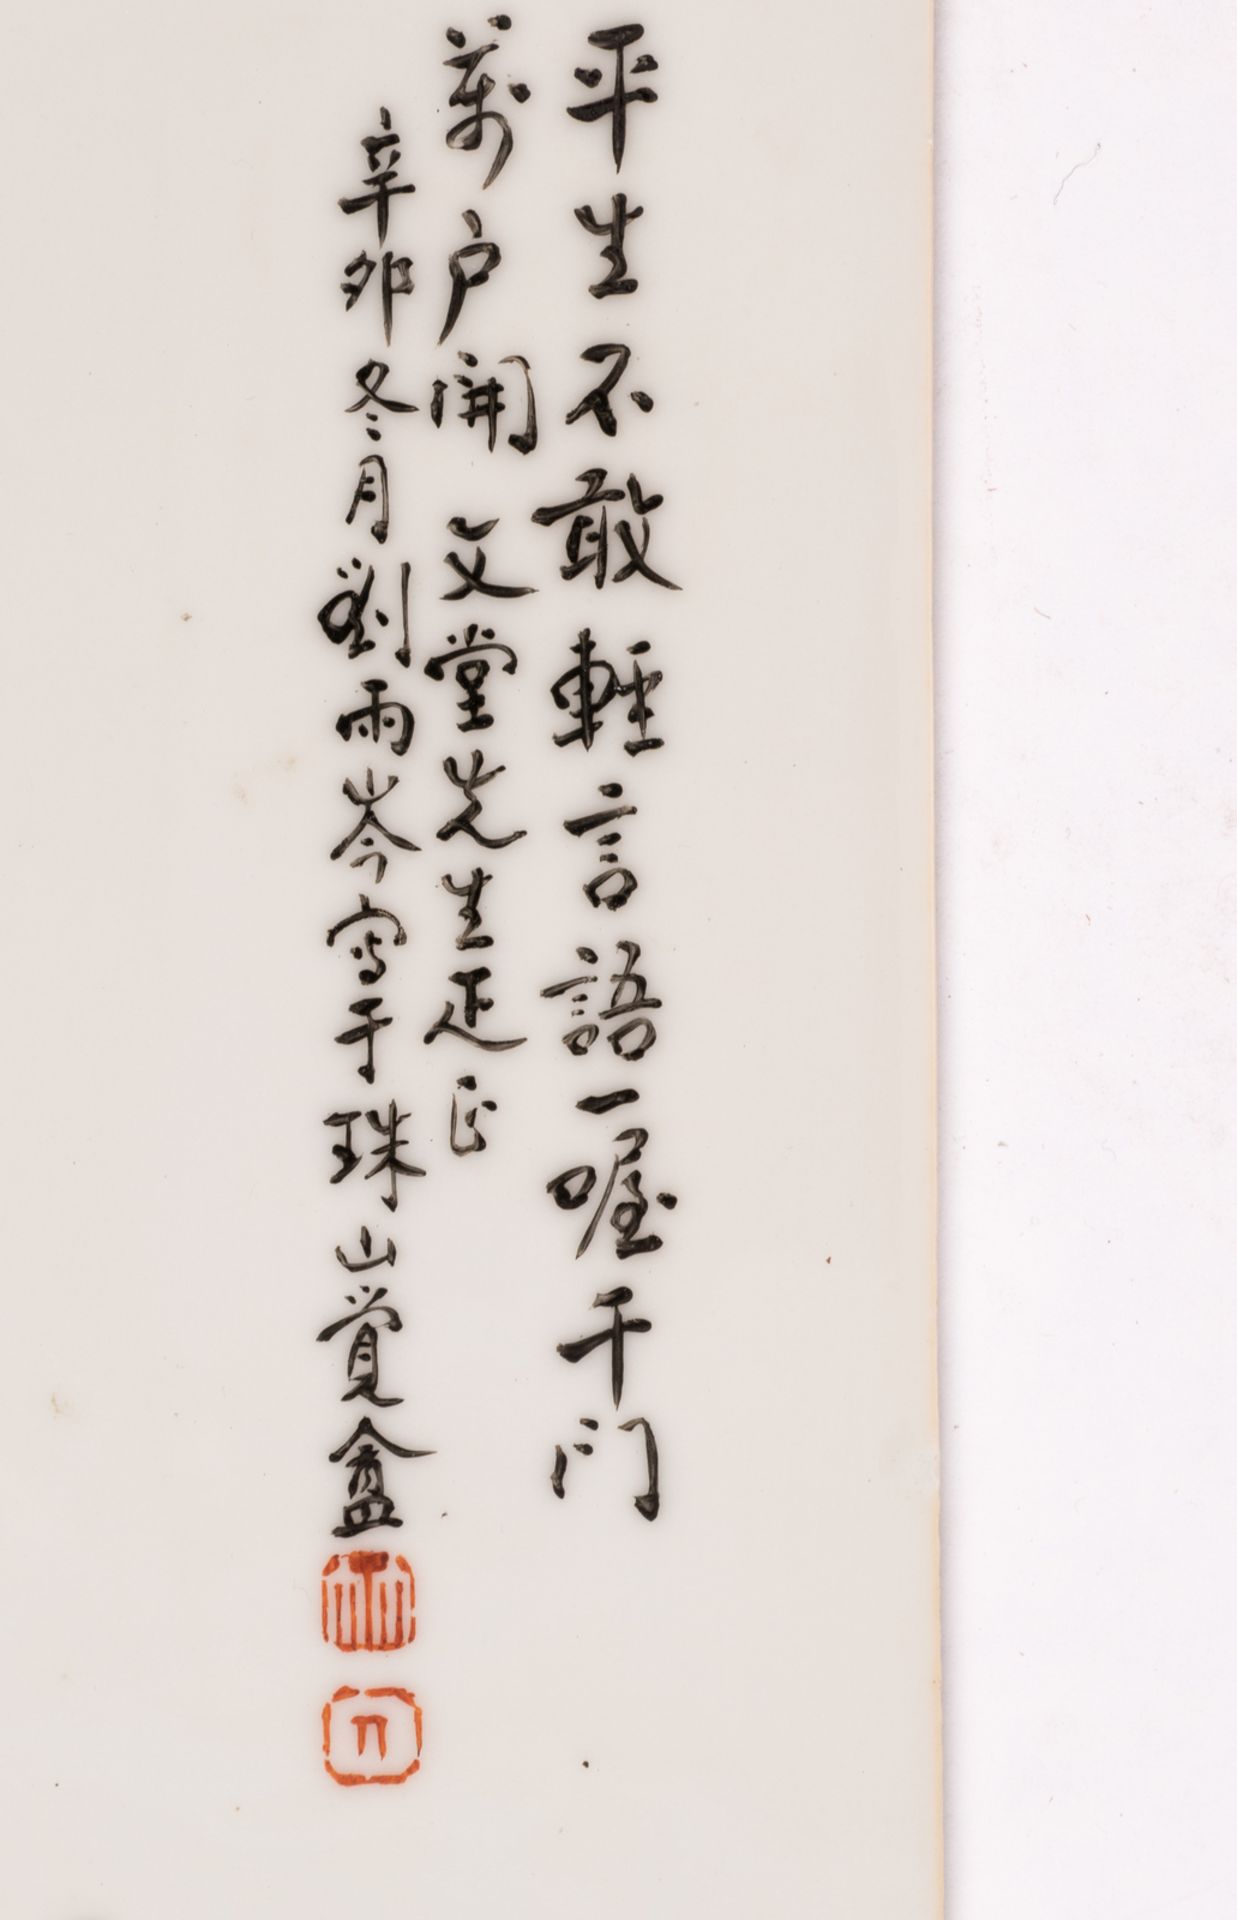 平生不敢輕言語一喔千門
萬户開 文堂先生疋正
辛卯冬月劉雨岑寫于珠山覺盦
雨